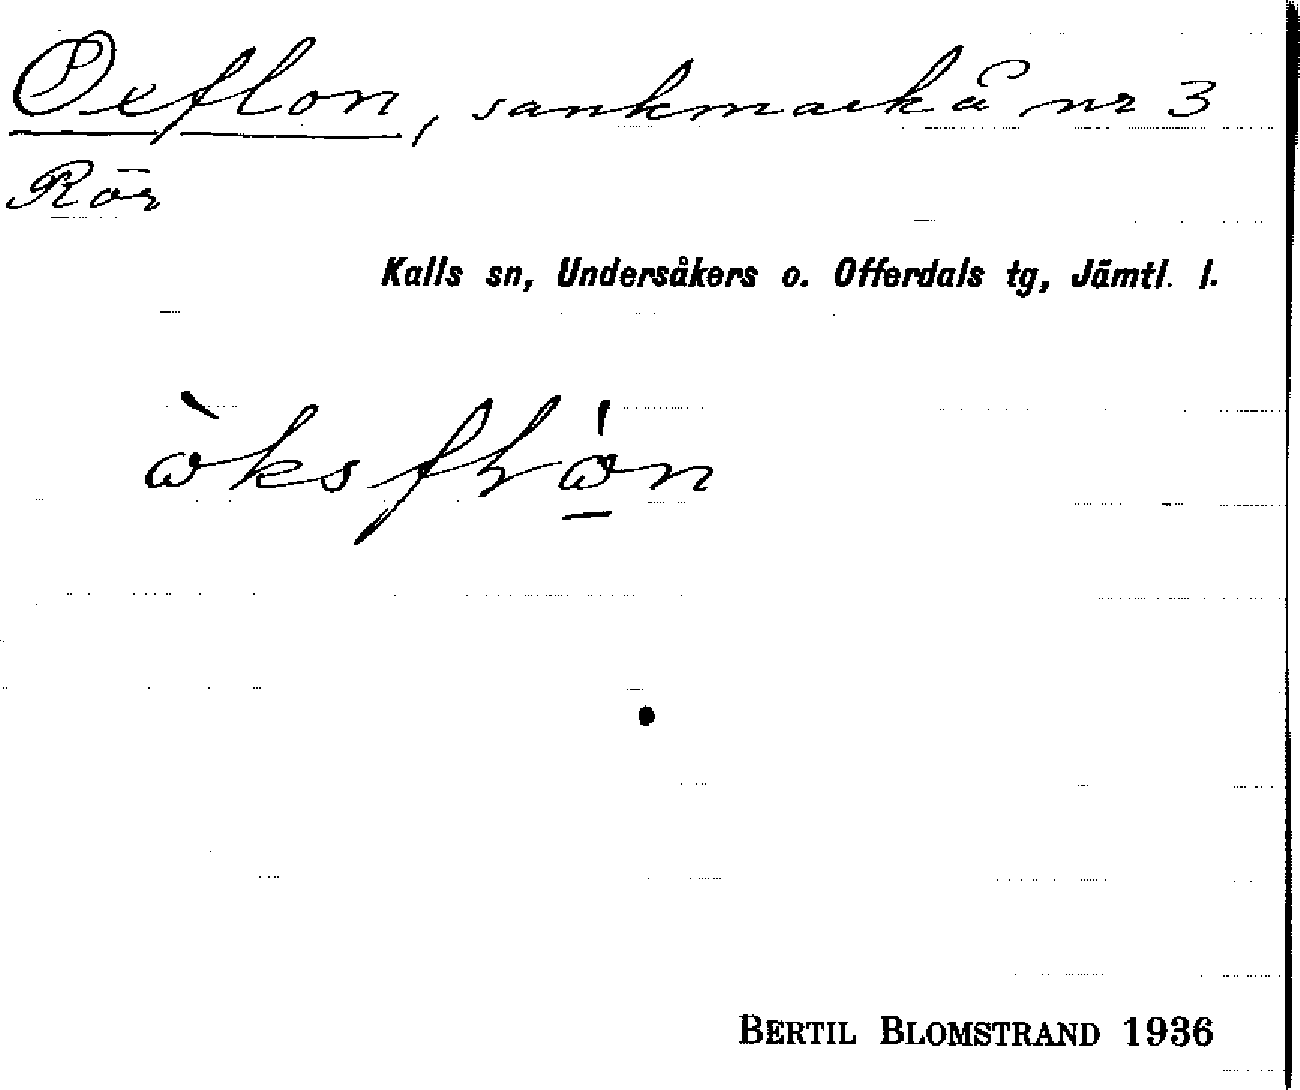 Oxflon, sankmark å nr 3
Rör
Kalls sn, Undersåkers o. Offerdals tg, Jämtl. l.
BERTIL BLOMSTRAND 1936